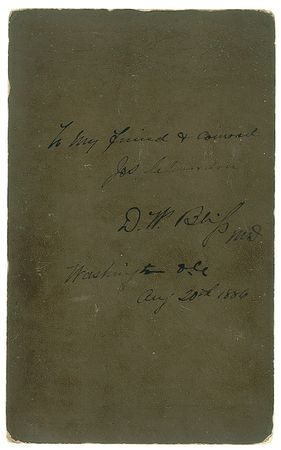 To My friend & counsel
Jos
D. W. Bliss
MD
Washington D.C
Aug 20th 1886